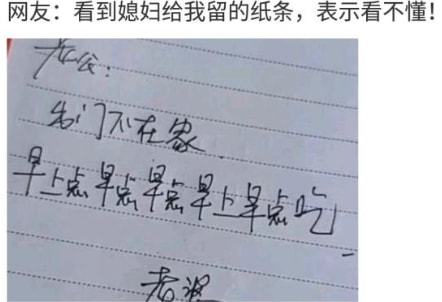 网友：看到媳妇给我留的纸条，表示看不懂！
老公：
出门不在家
早上点早点早点早上早点吃
老婆